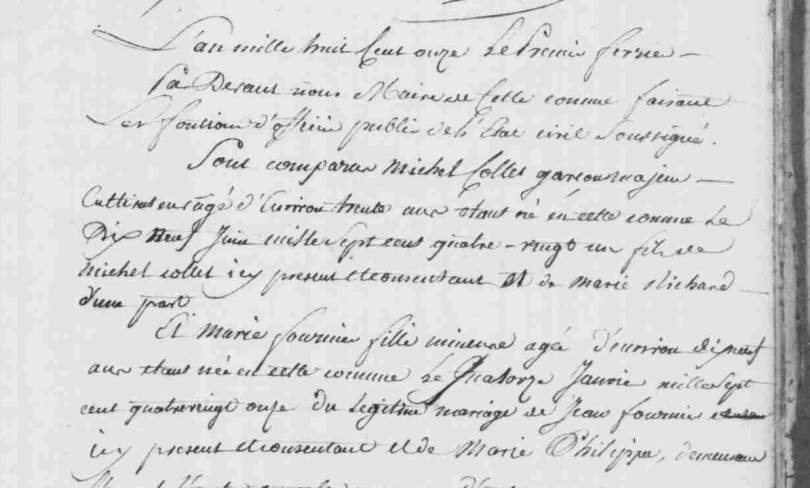 L'an mille huit Cent onze Le Premier fevrie
Par Devant nous Maire de Cette comune faisant
Les fontions d'officier public de l'Etat civil Soussigné.
Sont comparus Michel Collet garcon majeur
Cultivateur agé d'Environ trente ans Etant né en cette comune Le
Dix neuf Juin mille sept cent quatre-vingt un fils de
Michel collet icy present et consentant Et de marie Richard
d'une part
Et Marie fournier fille mineure agée d'environ dixneuf
ans Etant née en cette comune Le Quatorze Janvie mille Sept
cent quatrevingt onze Du legitime mariage de Jean fournier
icy present et consentant et de Marie Philippe, demeurant